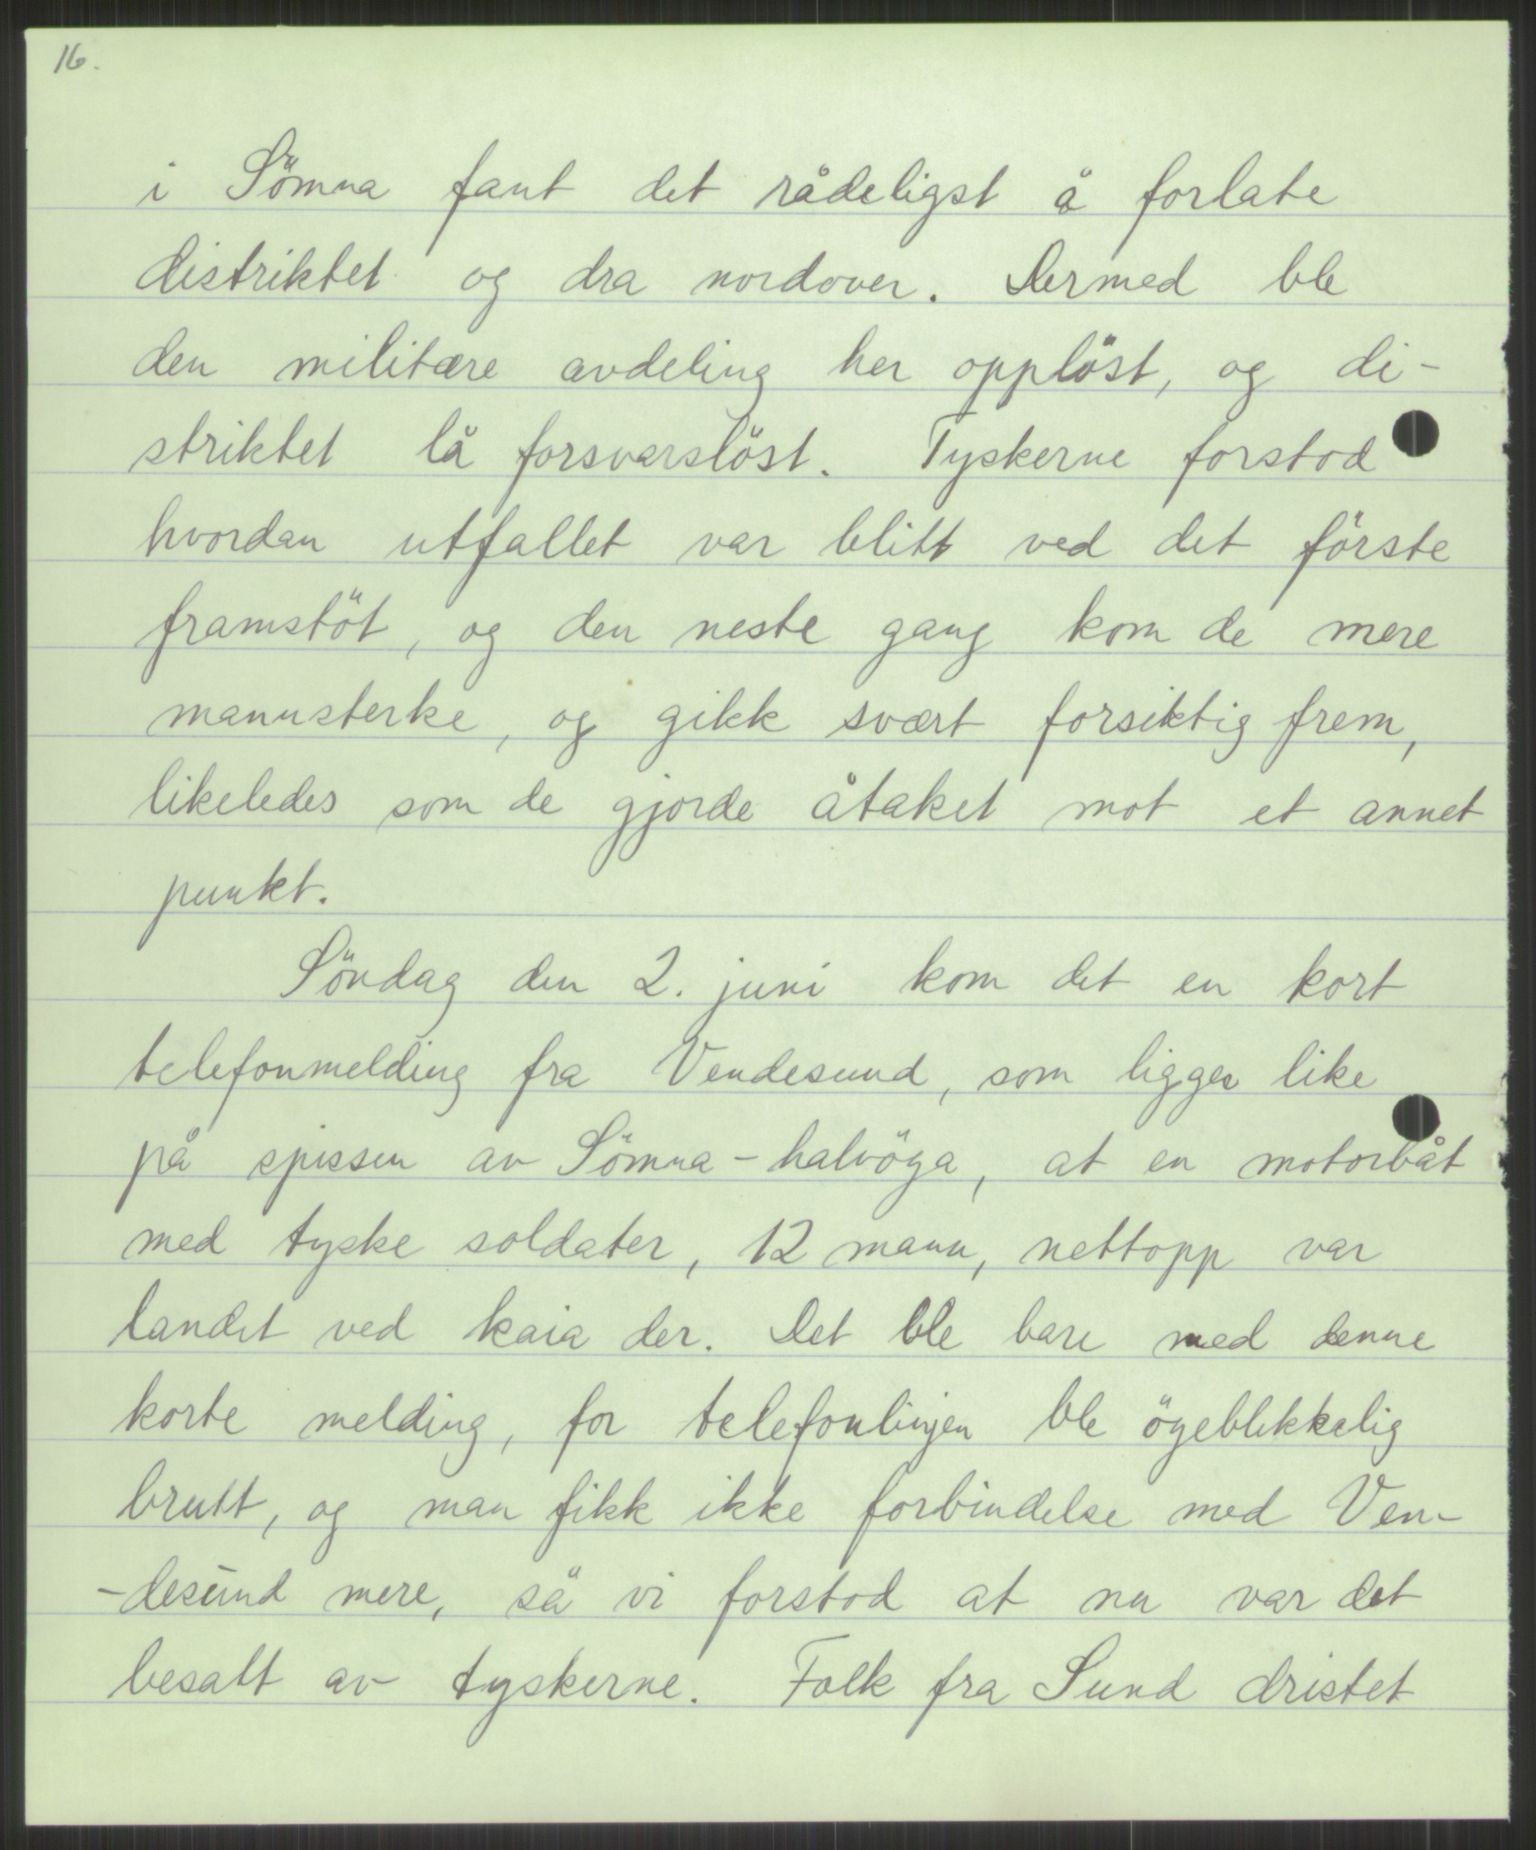 16.
i Sömna fant det rådeligst å forlate
distriktet og dra nordover. Dermed ble
den militære avdeling her opplöst, og di-
striktet lå forsvarslöst. Tyskerne forstod
hvordan utfallet var blitt ved det förste
framstöt, og den neste gang kom de mere
mannsterke, og gikk svært forsiktig frem,
likeledes som de gjorde åtaket mot et annet
punkt.
Söndag den 2. juni kom det en kort
telefonmelding fra Vendesund, som ligger like
på spissen av Sömna-halvöya, at en motorbåt
med tyske soldater, 12 mann, nettopp var
landet ved kaia der. Det ble bare med denne
korte melding, for telefonlinjen ble öyeblikkelig
brutt, og man fikk ikke forbindelse med Ven-
-desund mere, så vi forstod at nu var det
besatt av tyskerne. Folk fra Sund dristet